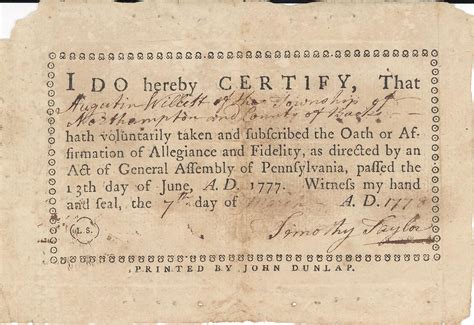 I DO hereby CERTIFY, That
Augustin Willett of the Township of
Northampton and County of Bucks
hath voluntarily taken and subscribed the Oath or Af-
firmation of Allegiance and Fidelity, as directed by an
Act of General Assembly of Pennsylvania, passed the
13th day of June, A. D. 1777. Witness my hand
and seal, the 7th day of March A. D. 1778
L. S.
Timothy Taylor
PRINTED BY JOHN DUNLAP.